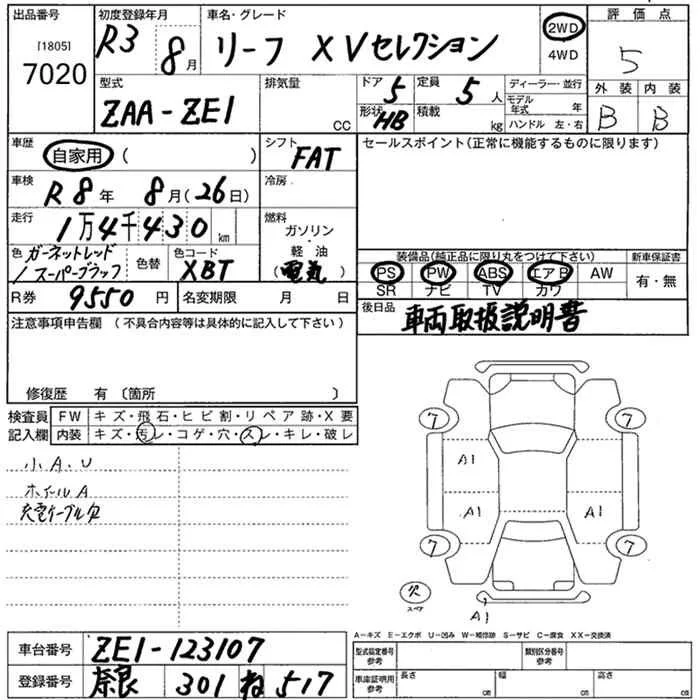 出品番号 初度登録年月 車名・グレード 評価点
[1805]
7020
R3 8月 リーフ XVセレクション 2WD 5
4WD
型式 排気量 ドア 定員 ディーラー・並行 外装 内装
ZAA-ZE1 CC 5 5人 モデル年式 年 B B
形状 積載 ハンドル 左・右
HB kg
車歴 自家用 ( ) シフト FAT セールスポイント(正常に機能するものに限ります)
車検 R8年 8月(26日) 冷房
走行 1万4千430km 燃料
ガソリン・軽油
(電気)
色 ガーネットレッド/スーパーブラック 色替 色コード XBT
装備品(純正品に限り丸をつけて下さい) 新車保証書
PS PW ABS エアB AW 有・無
SR ナビ TV カワ
R券 9550円 名変期限 月 日
後日品 車両取扱説明書
注意事項申告欄(不具合内容等は具体的に記入して下さい)
修復歴 有 〔箇所 〕
検査員記入欄
FW キズ・飛石・ヒビ割・リペア跡・X要
内装 キズ・汚レ・コゲ・穴・スレ・キレ・破レ
小A.U
ホイルA
充電ケーブル欠
7 7
A1
A1 A1
7 7
欠
スペア
A1
A-キズ E-エクボ U-凹み W-補修跡 S-サビ C-腐食 XX-交換済
車台番号 ZE1-123107
型式指定番号 参考 類別区分番号 参考
登録番号 奈良 301 ね 517
車庫証明用 参考 長さ cm 幅 cm 高さ cm